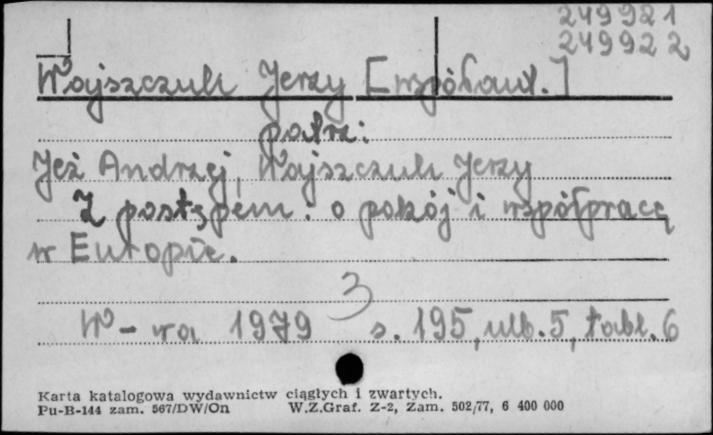 249921
249922
Wojszczuk Jerzy [współaut.]
patrz:
Jeż Andrzej, Wojszczuk Jerzy
Z postępem: o pokój i współpracę
w Europie.
3
W-wa 1979 s. 195, ulb. 5, tabl. 6
Karta katalogowa wydawnictw ciągłych i zwartych.
Pu-B-144 zam. 567/DW/On W.Z.Graf. Z-2, Zam. 502/77, 6 400 000